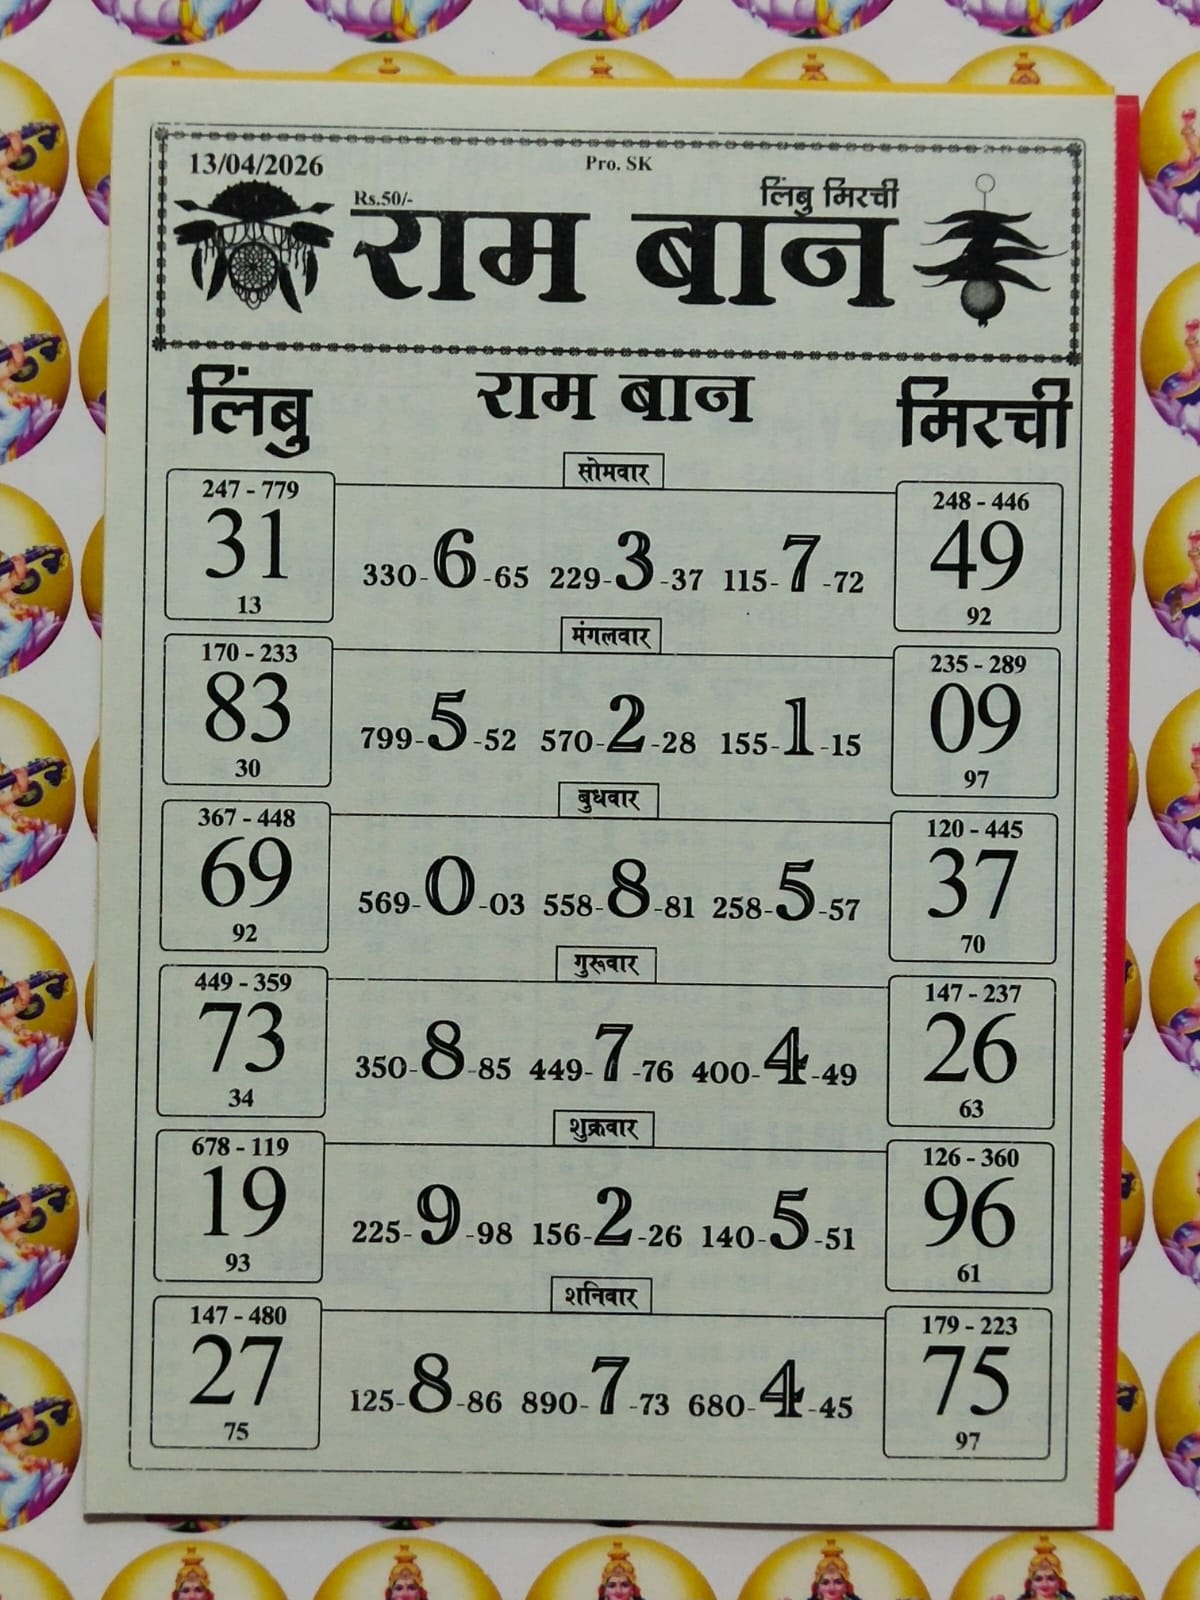 13/04/2026
Pro. SK
Rs.50/-
लिंबु मिरची
राम बान
लिंबु राम बान मिरची
सोमवार
247 - 779
31
13
330-6-65 229-3-37 115-7-72
248 - 446
49
92
मंगलवार
170 - 233
83
30
799-5-52 570-2-28 155-1-15
235 - 289
09
97
बुधवार
367 - 448
69
92
569-0-03 558-8-81 258-5-57
120 - 445
37
70
गुरूवार
449 - 359
73
34
350-8-85 449-7-76 400-4-49
147 - 237
26
63
शुक्रवार
678 - 119
19
93
225-9-98 156-2-26 140-5-51
126 - 360
96
61
शनिवार
147 - 480
27
75
125-8-86 890-7-73 680-4-45
179 - 223
75
97